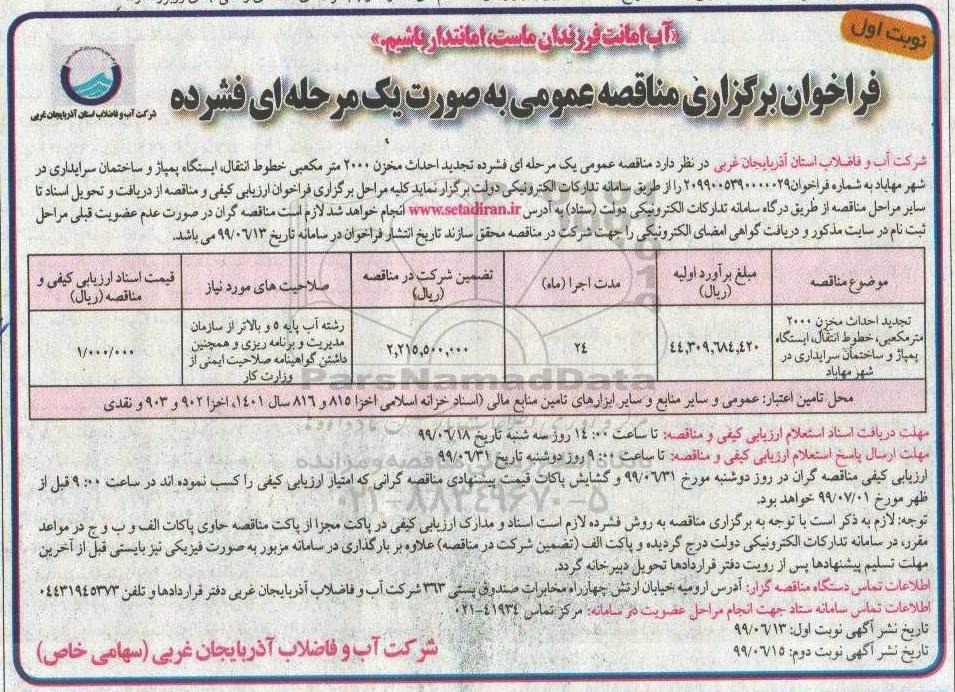 نوبت اول
«آب امانت فرزندان ماست، امانتدار باشیم.»
فراخوان برگزاری مناقصه عمومی به صورت یک مرحله ای فشرده
شرکت آب و فاضلاب استان آذربایجان غربی
شرکت آب و فاضلاب استان آذربایجان غربی در نظر دارد مناقصه عمومی یک مرحله ای فشرده تجدید احداث مخزن ۲۰۰۰ متر مکعبی خطوط انتقال، ایستگاه پمپاژ و ساختمان سرایداری در
شهر مهاباد به شماره فراخوان ۲۰۹۹۰۰۵۳۹۰۰۰۰۰۲۹ را از طریق سامانه تدارکات الکترونیکی دولت برگزار نماید کلیه مراحل برگزاری فراخوان ارزیابی کیفی و مناقصه از دریافت و تحویل اسناد تا
سایر مراحل مناقصه از طریق درگاه سامانه تدارکات الکترونیکی دولت (ستاد) به آدرس www.setadiran.ir انجام خواهد شد لازم است مناقصه گران در صورت عدم عضویت قبلی مراحل
ثبت نام در سایت مذکور و دریافت گواهی امضای الکترونیکی را جهت شرکت در مناقصه محقق سازند تاریخ انتشار فراخوان در سامانه تاریخ ۹۹/۰۶/۱۳ می باشد.
موضوع مناقصه
مبلغ برآورد اولیه
(ریال)
مدت اجرا (ماه)
تضمین شرکت در مناقصه
(ریال)
صلاحیت های مورد نیاز
قیمت اسناد ارزیابی کیفی و
مناقصه (ریال)
تجدید احداث مخزن ۲۰۰۰
مترمکعبی، خطوط انتقال، ایستگاه
پمپاژ و ساختمان سرایداری در
شهر مهاباد
۴۴,۳۰۹,۶۸۴,۴۲۰
۲۴
۲,۲۱۵,۵۰۰,۰۰۰
رشته آب پایه ۵ و بالاتر از سازمان
مدیریت و برنامه ریزی و همچنین
داشتن گواهینامه صلاحیت ایمنی از
وزارت کار
۱/۰۰۰/۰۰۰
محل تامین اعتبار: عمومی و سایر منابع و سایر ابزارهای تامین منابع مالی (اسناد خزانه اسلامی اخزا ۸۱۵ و ۸۱۶ سال ۱۴۰۱، اخزا ۹۰۲ و ۹۰۳ و نقدی
مهلت دریافت اسناد استعلام ارزیابی کیفی و مناقصه: تا ساعت ۱۴:۰۰ روز سه شنبه تاریخ ۹۹/۰۶/۱۸
مهلت ارسال پاسخ استعلام ارزیابی کیفی و مناقصه: تا ساعت ۹:۰۰ روز دوشنبه تاریخ ۹۹/۰۶/۳۱
ارزیابی کیفی مناقصه گران در روز دوشنبه مورخ ۹۹/۰۶/۳۱ و گشایش پاکات قیمت پیشنهادی مناقصه گرانی که امتیاز ارزیابی کیفی را کسب نموده اند در ساعت ۹:۰۰ قبل از
ظهر مورخ ۹۹/۰۷/۰۱ خواهد بود.
توجه: لازم به ذکر است با توجه به برگزاری مناقصه به روش فشرده لازم است اسناد و مدارک ارزیابی کیفی در پاکت مجزا از پاکت مناقصه حاوی پاکات الف و ب و ج در مواعد
مقرر، در سامانه تدارکات الکترونیکی دولت درج گردیده و پاکت الف (تضمین شرکت در مناقصه) علاوه بر بارگذاری در سامانه مزبور به صورت فیزیکی نیز بایستی قبل از آخرین
مهلت تسلیم پیشنهادها پس از رویت دفتر قراردادها تحویل دبیرخانه گردد.
اطلاعات تماس دستگاه مناقصه گزار: آدرس ارومیه خیابان ارتش چهارراه مخابرات صندوق پستی ۳۶۳ شرکت آب و فاضلاب آذربایجان غربی دفتر قراردادها و تلفن ۰۴۴۳۱۹۴۵۳۷۳
اطلاعات تماس سامانه ستاد جهت انجام مراحل عضویت در سامانه: مرکز تماس ۴۱۹۳۴-۰۲۱
تاریخ نشر آگهی نوبت اول: ۹۹/۰۶/۱۳
تاریخ نشر آگهی نوبت دوم: ۹۹/۰۶/۱۵
شرکت آب و فاضلاب آذربایجان غربی (سهامی خاص)
ParsNamadData
۰۲۱-۸۸۳۴۹۶۷۰-۵